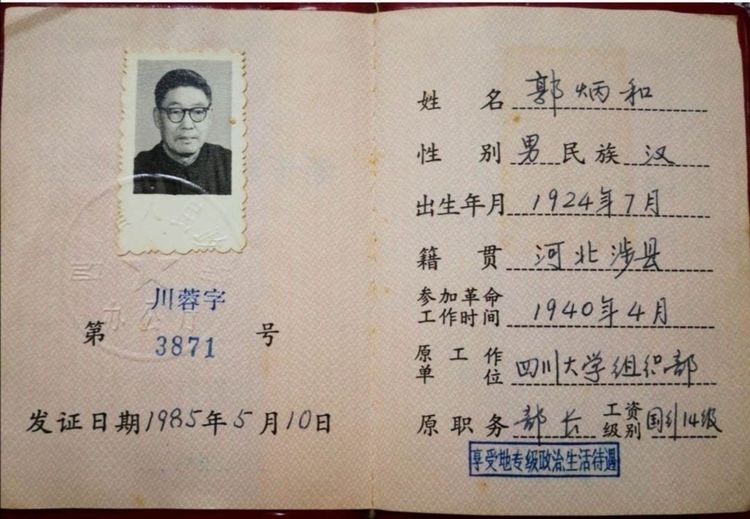 川蓉字
第 3871 号
发证日期1985年5月10日
姓名 郭炳和
性别 男 民族 汉
出生年月 1924年7月
籍贯 河北涉县
参加革命
工作时间 1940年4月
原工作
单位 四川大学组织部
原职务 部长 工资
级别 国行14级
享受地专级政治生活待遇